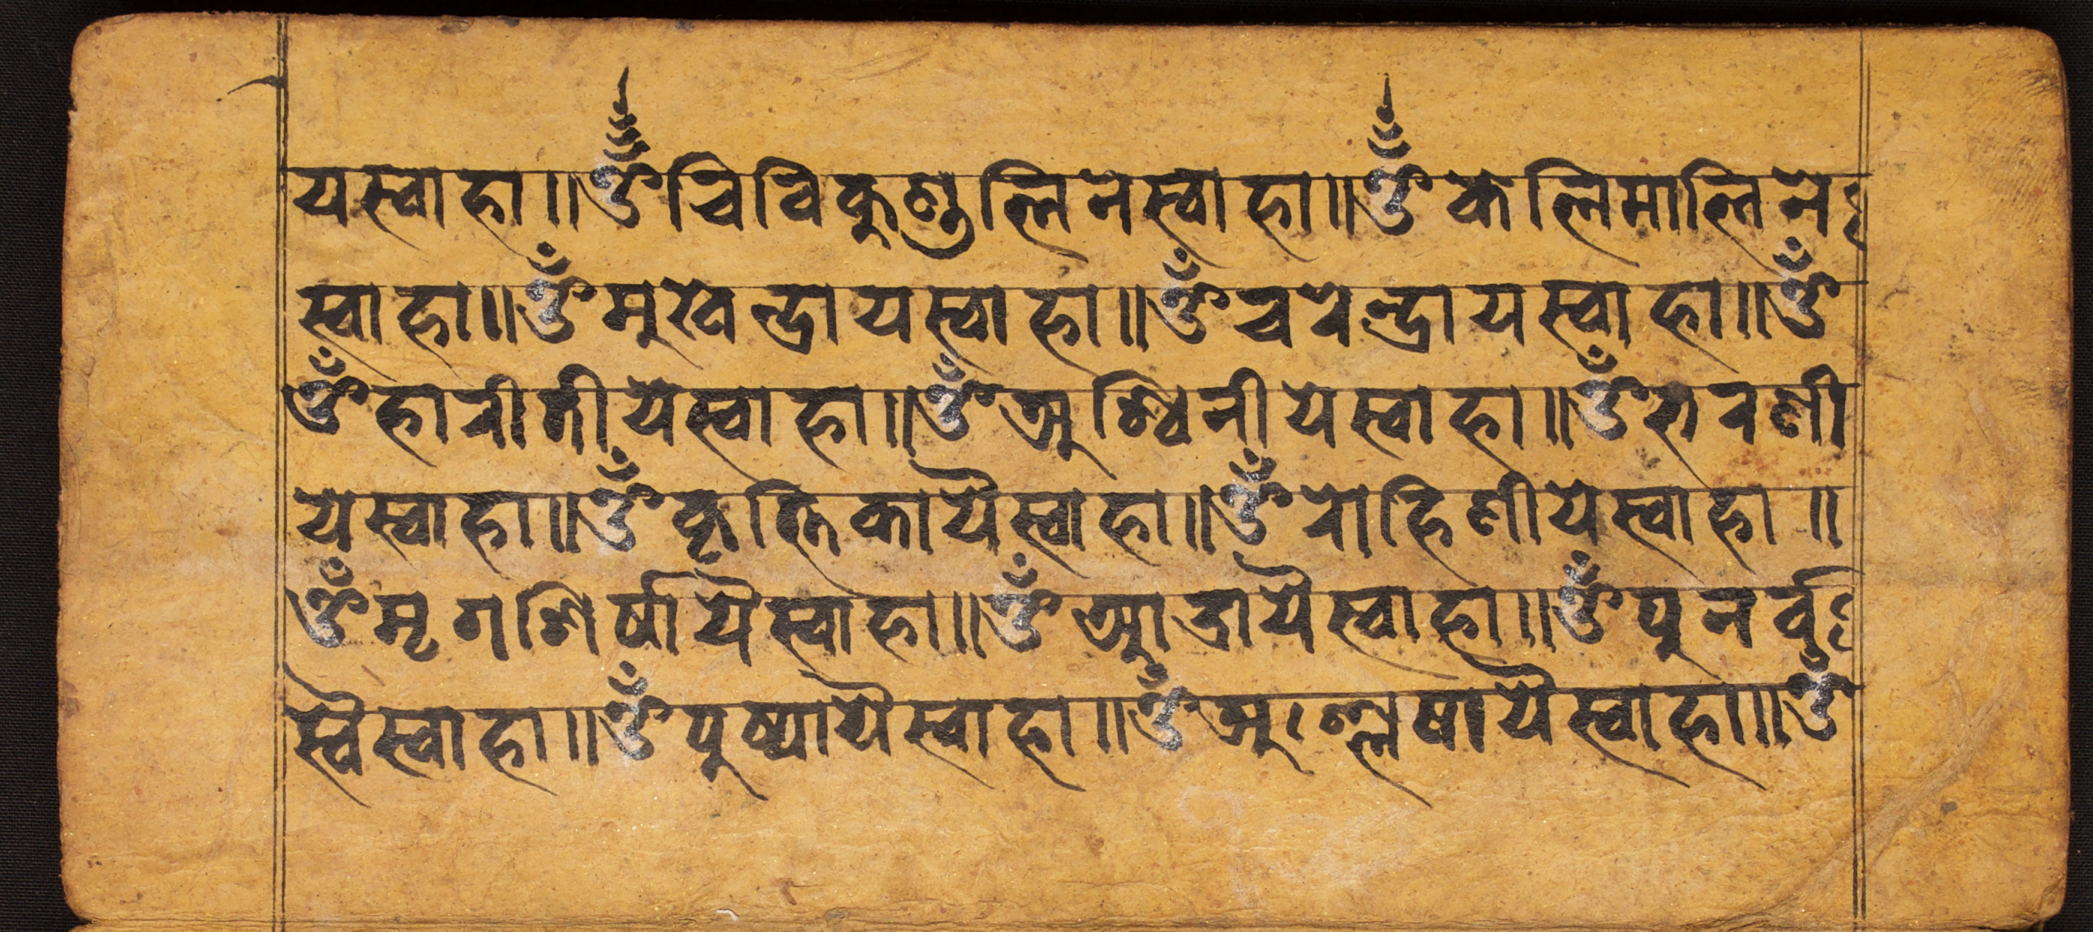 यस्वाहा॥ॐचिविकुण्डलिनेस्वाहा॥ॐकेलिमालिने
स्वाहा॥ॐमुखेन्द्रायस्वाहा॥ॐचरेन्द्रायस्वाहा॥ॐ
ॐहारीतीयेस्वाहा॥ॐअश्विनीयेस्वाहा॥ॐभरणी
येस्वाहा॥ॐकृत्तिकायैस्वाहा॥ॐरोहिणीयेस्वाहा॥
ॐमृगशिर्षायैस्वाहा॥ॐआद्रायैस्वाहा॥ॐपुनर्वु
स्वैस्वाहा॥ॐपुष्यायैस्वाहा॥ॐअश्लेषायैस्वाहा॥ॐ